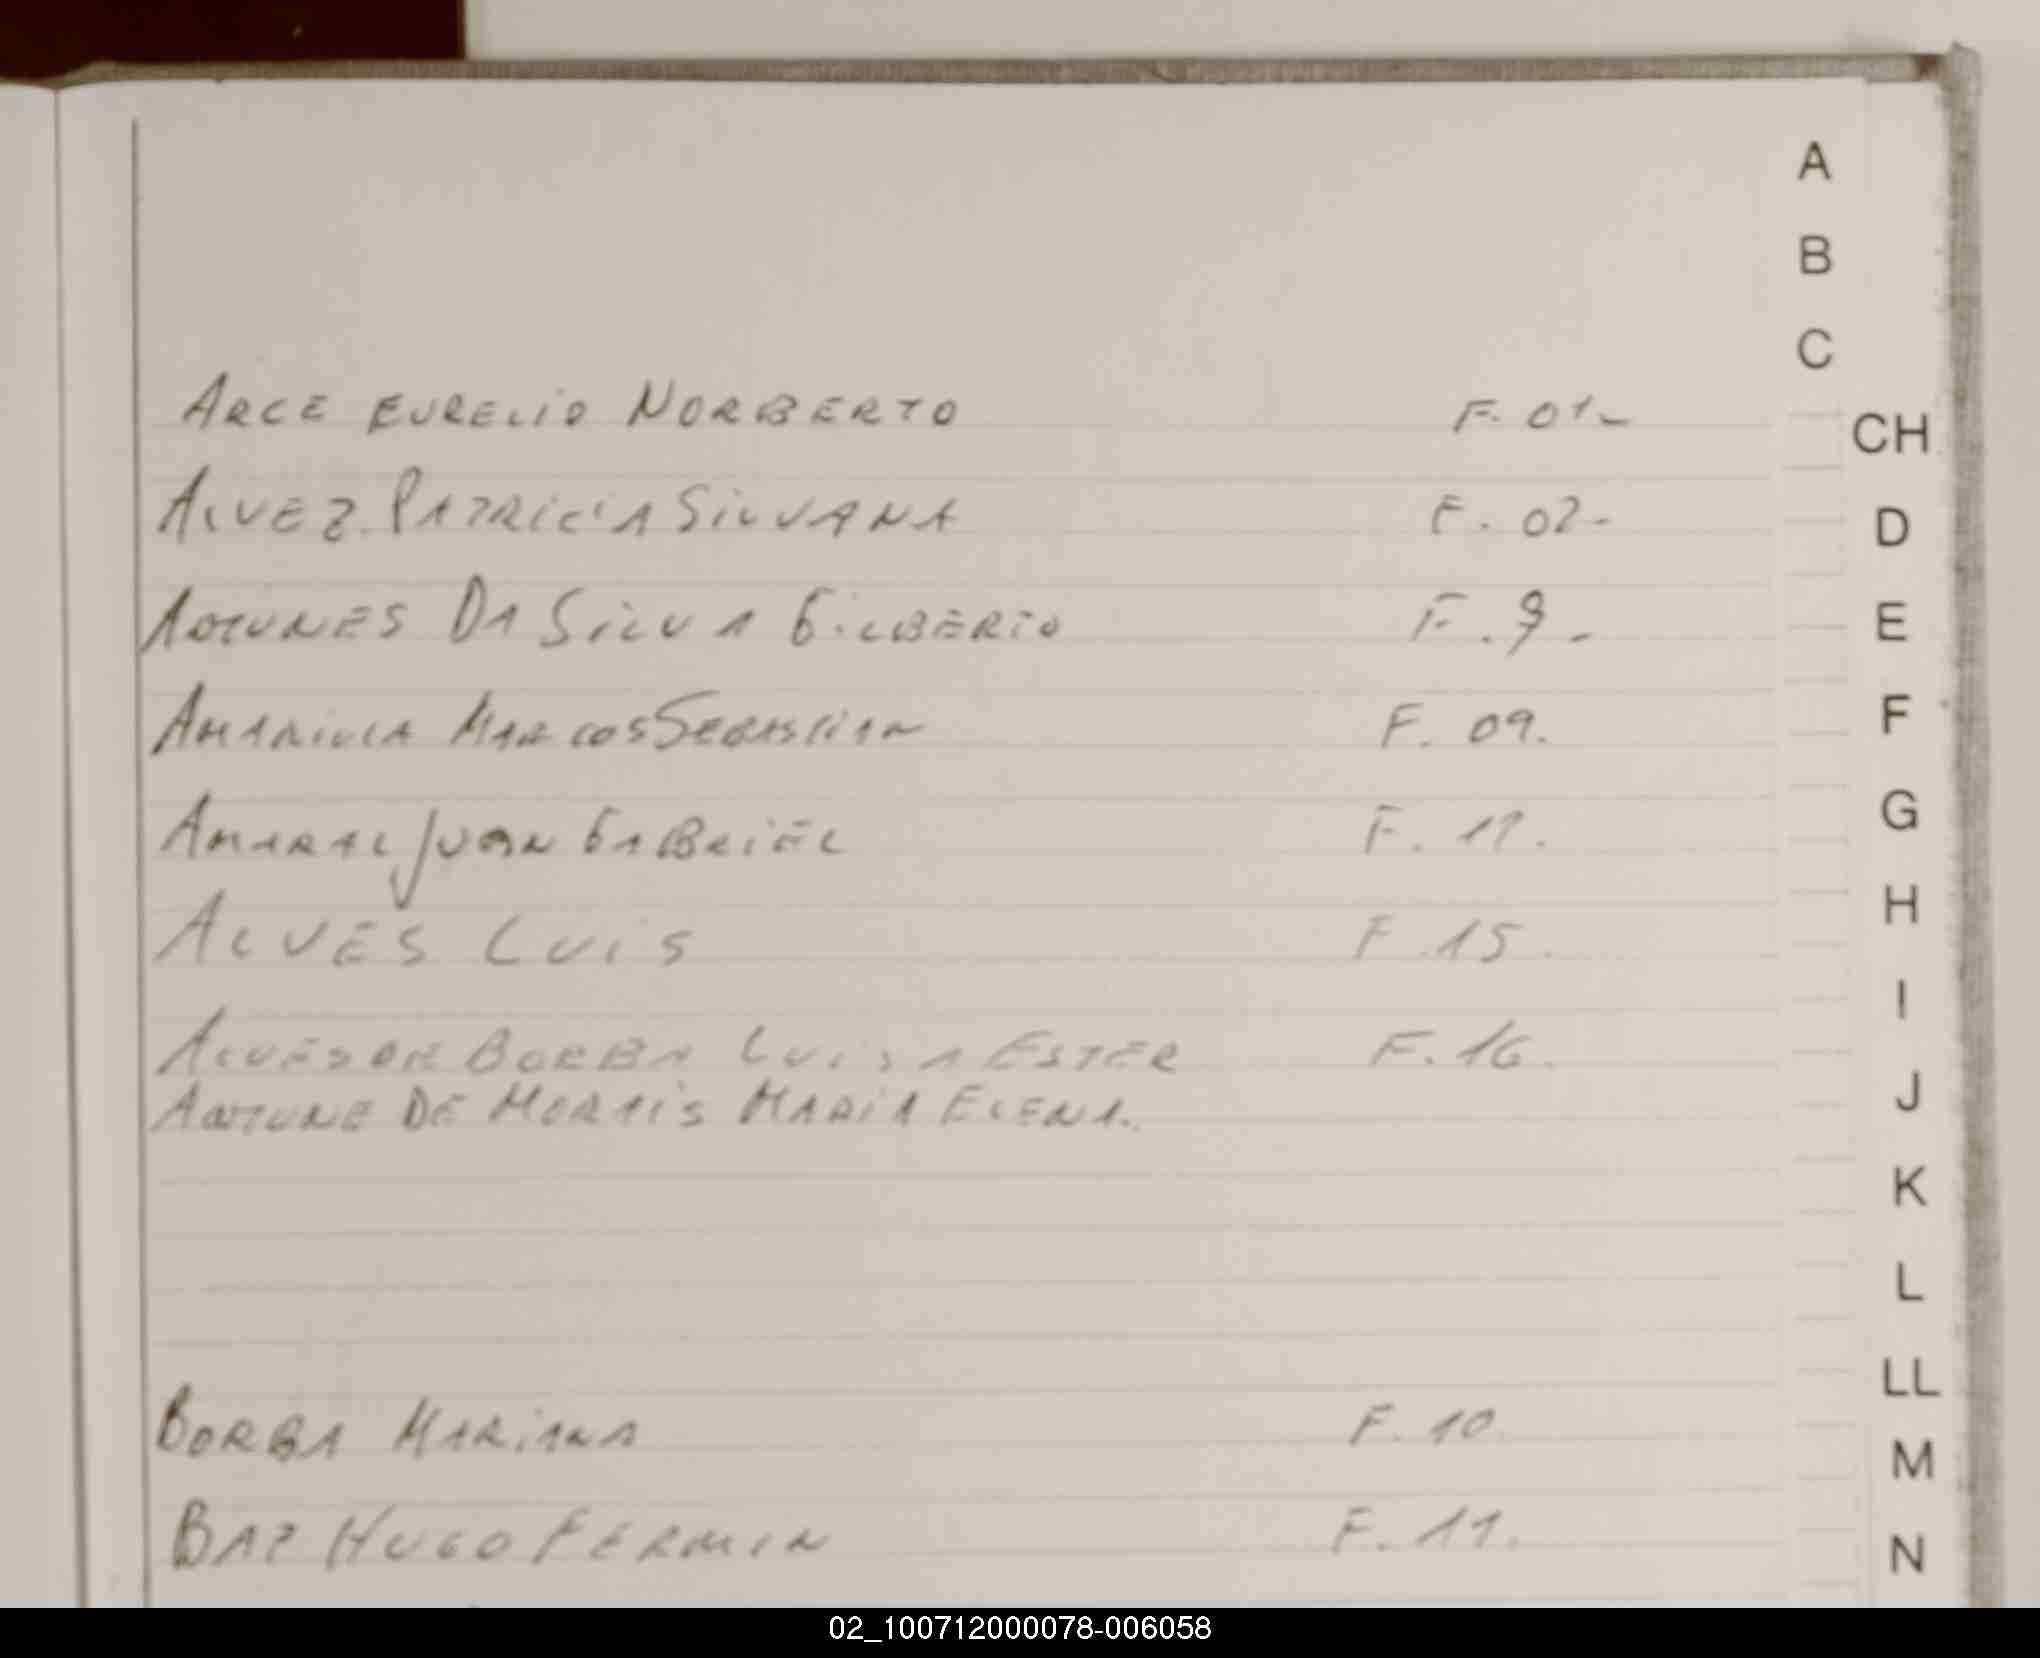 A
B
C
ARCE EURELIO NORBERTO F. 01-
CH
ALVEZ PATRICIA SILVANA F. 02-
D
ANTUNES DA SILVA GILBERTO F. 9-
E
MARCOS SEBASTIAN F. 09.
F
AMARAL JUAN GABRIEL F. 11.
G
ALVES LUIS F. 15.
H
I
BORBA LUISA ESTER F. 16.
ANTUNE DE MORAIS MARIA ELENA.
J
K
L
LL
BORBA MARIANA F. 10
M
HUGO FERMIN F. 11.
N
02_100712000078-006058